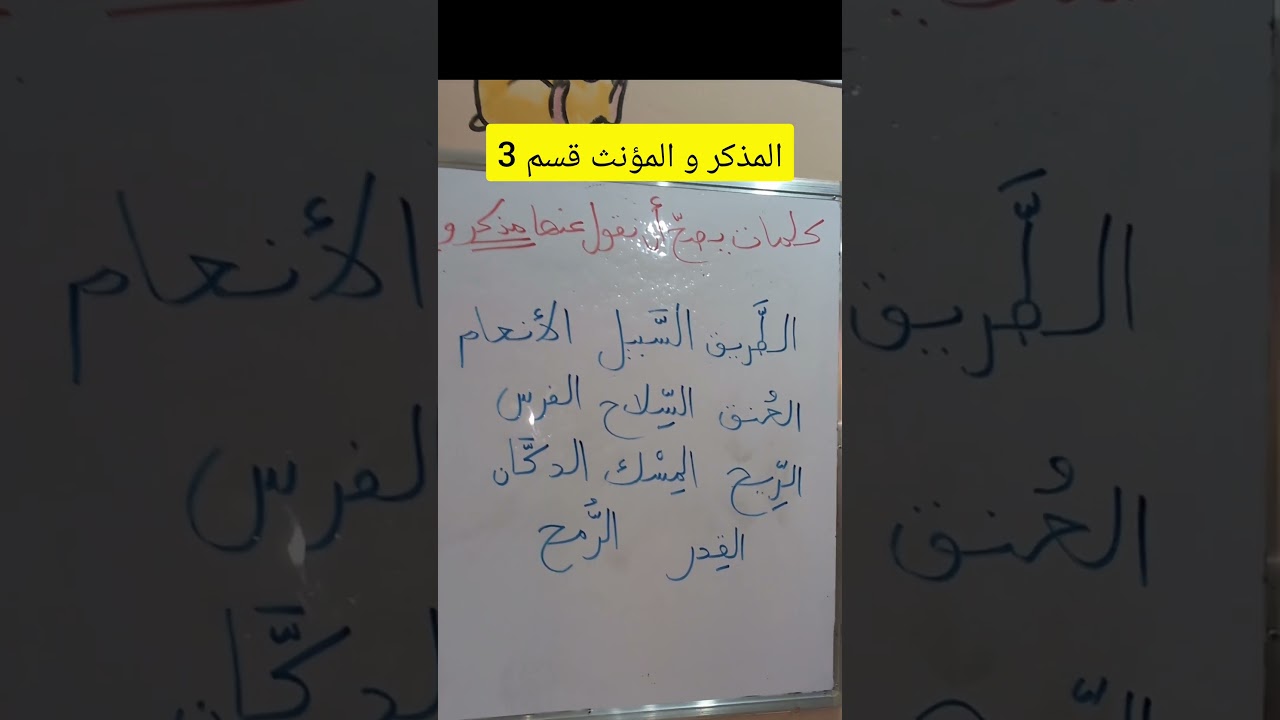 المذكر و المؤنث قسم 3
كلمات يصحّ أن نقول عنها مذكر و
الطَّريق السَّبيل الأنعام
العُنق السِّلاح الفرس
الرِّيح المِسْك الدكَّان
القِدر الرُّمح